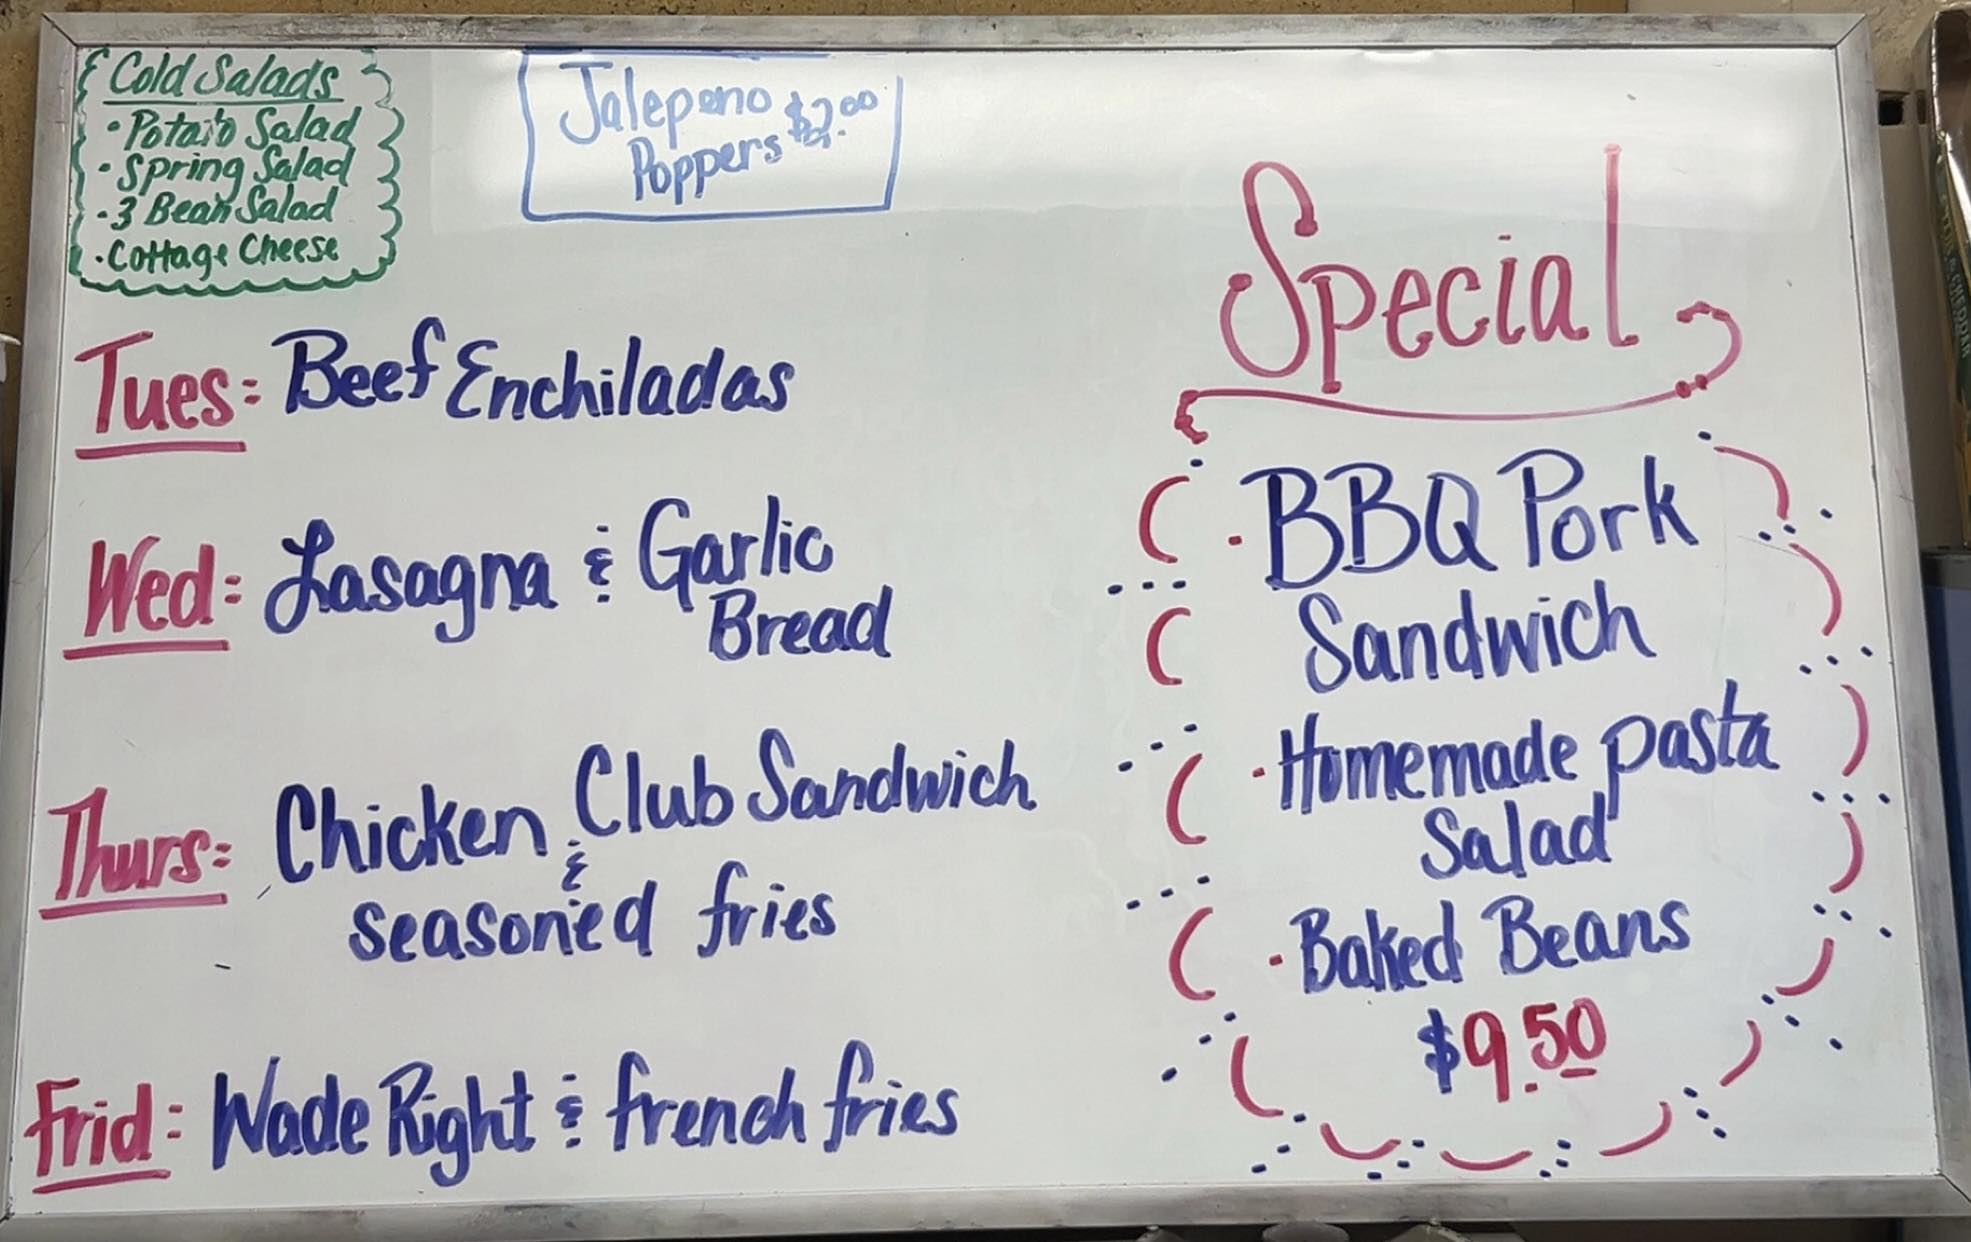 Cold Salads
• Potato Salad
• Spring Salad
• 3 Bean Salad
• Cottage Cheese
Jalepeno
Poppers $2.00
Tues: Beef Enchiladas
Wed: Lasagna & Garlic
Bread
Thurs: Chicken Club Sandwich
&
seasoned fries
Frid: Wade Right & french fries
Special
• BBQ Pork
Sandwich
• Homemade pasta
Salad
• Baked Beans
$9.50